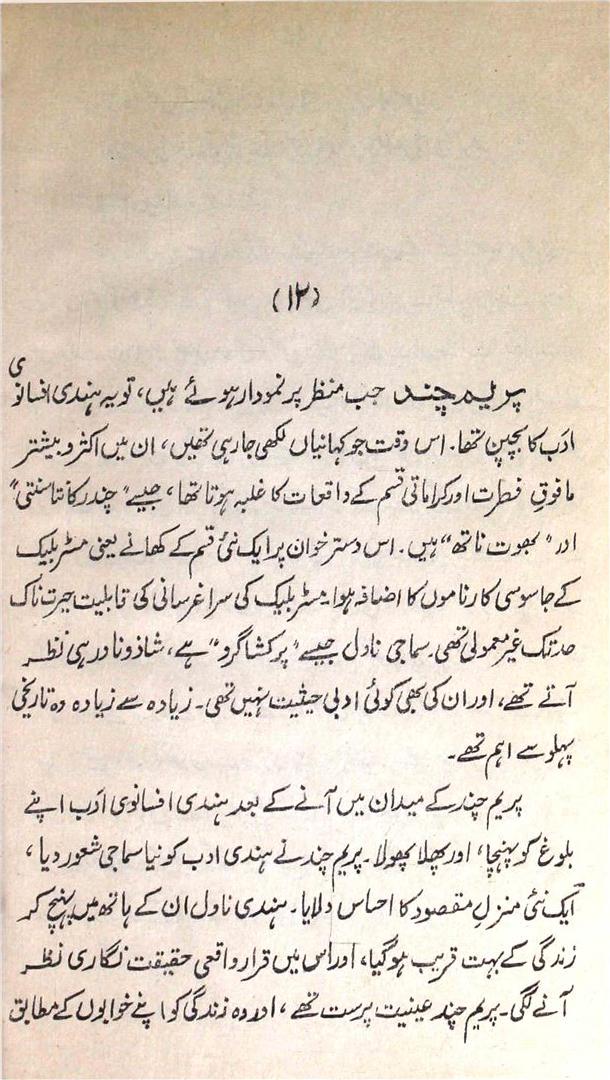 (۱۲)
پریم چند جب منظر پر نمودار ہوئے ہیں، تو یہ ہندی افسانوی
ادَب کا بچپن تھا۔ اس وقت جو کہانیاں لکھی جا رہی تھیں، ان میں اکثر و بیشتر
مافوقِ فطرت اور کراماتی قسم کے واقعات کا غلبہ ہوتا تھا، جیسے "چندر کانتا سنتتی"
اور "بھوت ناتھ" ہیں۔ اس دسترخوان پر ایک نئی قسم کے کھانے یعنی مسٹر بلیک
کے جاسوسی کارناموں کا اضافہ ہوا۔ مسٹر بلیک کی سراغرسانی کی قابلیت حیرت ناک
حد تک غیر معمولی تھی۔ سماجی ناول جیسے "پرکشا گرو" ہے، شاذ و نادر ہی نظر
آتے تھے، اور ان کی بھی کوئی ادبی حیثیت نہیں تھی۔ زیادہ سے زیادہ وہ تاریخی
پہلو سے اہم تھے۔
پریم چند کے میدان میں آنے کے بعد ہندی افسانوی ادَب اپنے
بلوغ کو پہنچا، اور پھلا پھولا۔ پریم چند نے ہندی ادب کو نیا سماجی شعور دیا،
ایک نئی منزلِ مقصود کا احساس دلایا۔ ہندی ناول ان کے ہاتھ میں پہنچ کر
زندگی کے بہت قریب ہو گیا، اور اس میں قرار واقعی حقیقت نگاری نظر
آنے لگی۔ پریم چند عینیت پرست تھے، اور وہ زندگی کو اپنے خوابوں کے مطابق